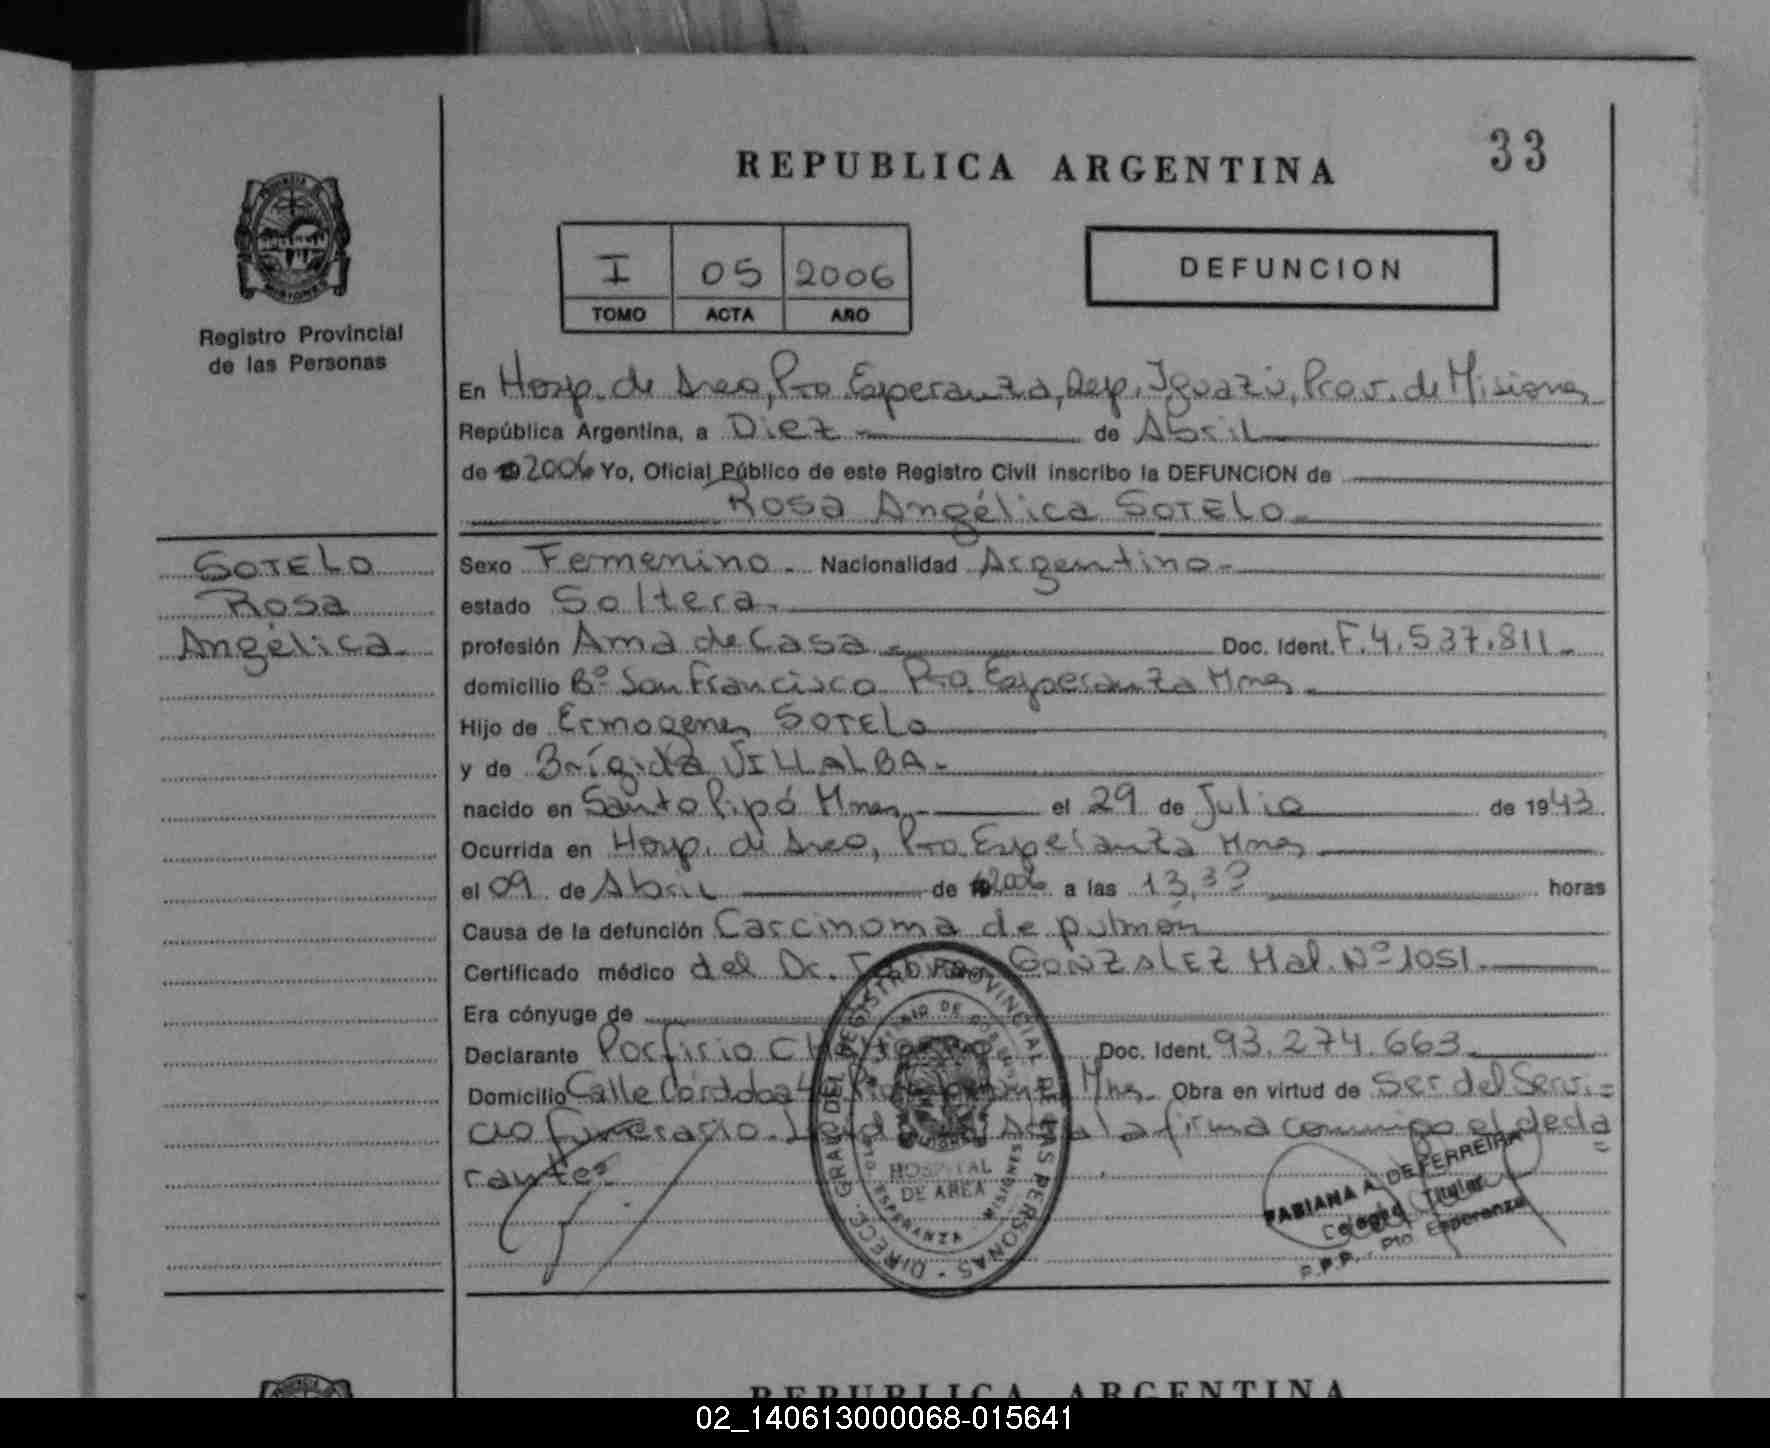 33
REPUBLICA ARGENTINA
I 05 2006
TOMO ACTA AÑO
DEFUNCION
MISIONES
Registro Provincial
de las Personas
En Hosp. de Area, Pto. Esperanza, Dep. Iguazú, Prov. de Misiones
República Argentina, a Diez de Abril
de 2006 Yo, Oficial Público de este Registro Civil inscribo la DEFUNCION de
Rosa Angélica SOTELO
SOTELO
Rosa
Angélica
Sexo Femenino. Nacionalidad Argentina
estado Soltera
profesión Ama de Casa Doc. Ident. F. 4.537.811
domicilio Bº San Francisco Pto. Esperanza Mnes
Hijo de Ermogenes SOTELO
y de Brígida VILLALBA
nacido en Santo Pipó Mnes el 29 de Julio de 1943
Ocurrida en Hosp. de Area, Pto. Esperanza Mnes
el 09 de Abril de 2006 a las 13,30 horas
Causa de la defunción Carcinoma de pulmón
Certificado médico del Dr. GONZALEZ Mat. Nº 1051
Era cónyuge de
Declarante Porfirio Doc. Ident. 93.274.663
Domicilio Calle Córdoba Mnes. Obra en virtud de Ser del Servi=
cio funerario. la firma conmigo el decla=
rante
DIRECC. GRAL. DEL REGISTRO PROVINCIAL DE LAS PERSONAS
HOSPITAL
DE AREA
ESPERANZA MISIONES
FABIANA A. DE FERREIRA
Titular
R.P.P. - Pto. Esperanza
REPUBLICA ARGENTINA
02_140613000068-015641